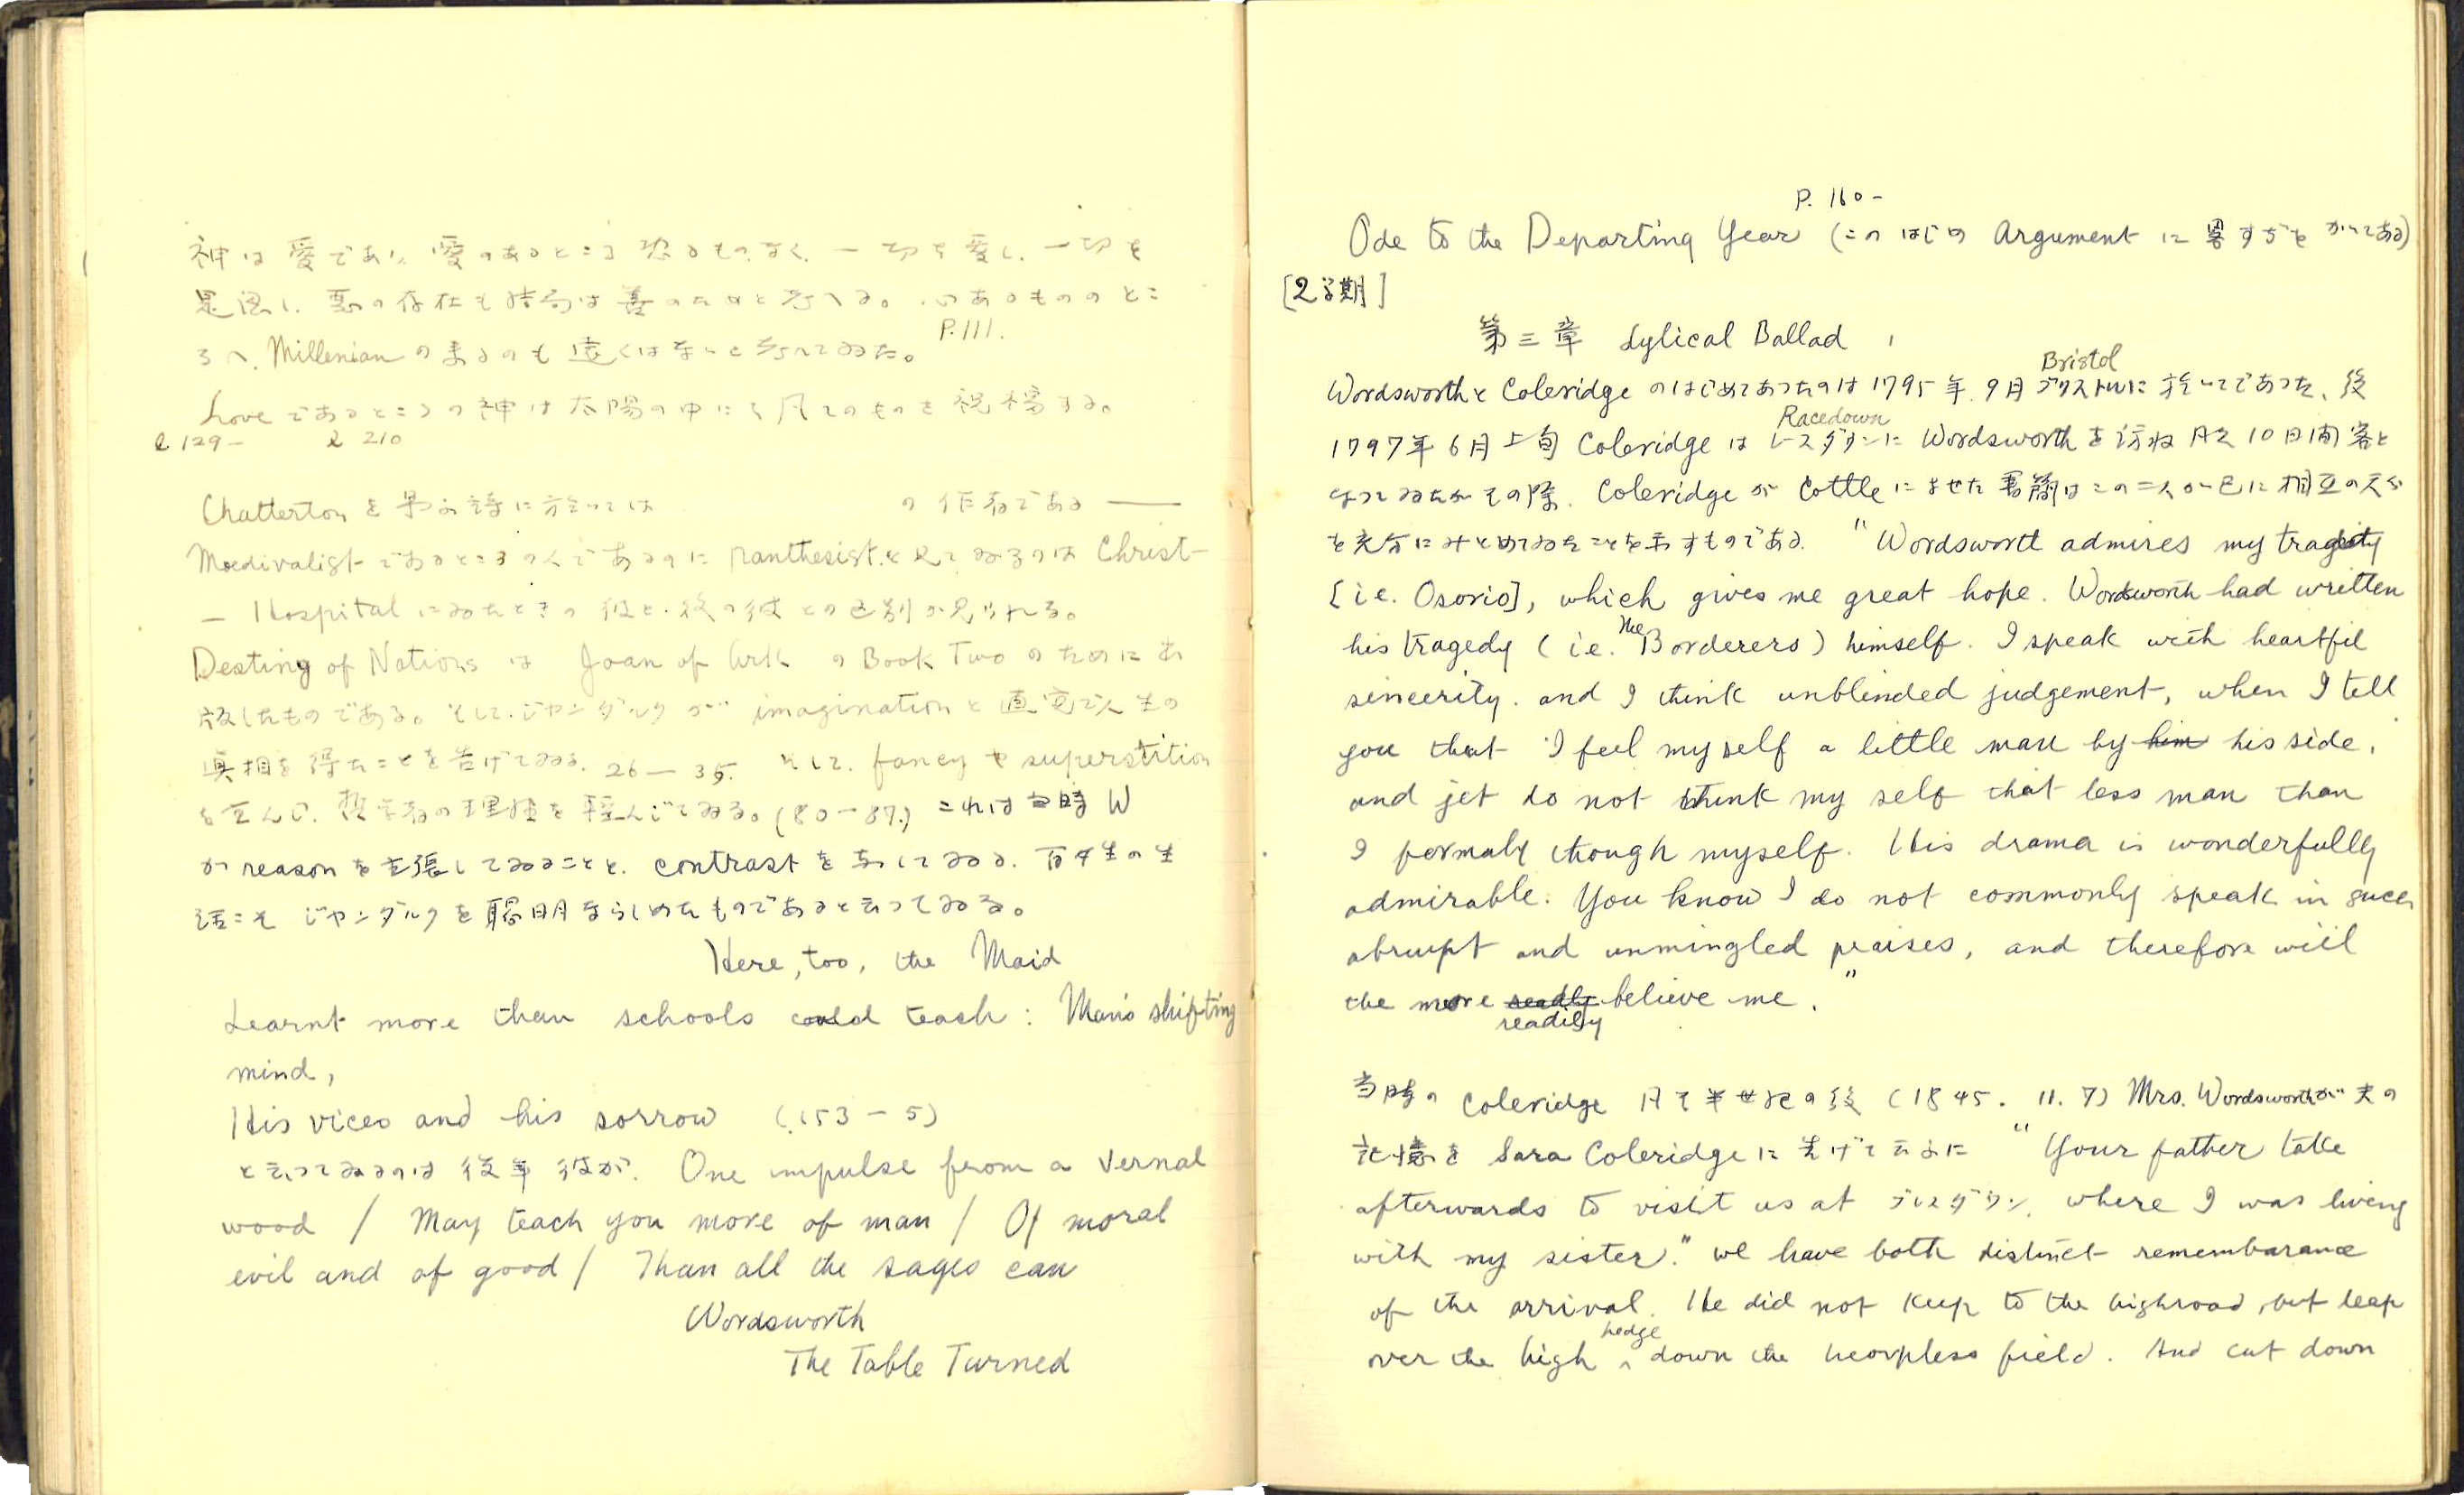 神は愛であり、愛のあるところ恐るものなく、一切を愛し、一切を
是認し、悪の存在も結局は善のためと考へる。心あるもののとこ
P.111.
ろへ、Millenianの来るのも遠くはないと考へてゐた。
Loveであるところの神は太陽の中にも凡てのものを祝福する。
l 129- l 210
Chattertonを弔ふ詩に於いては の作者である ——
Moedivalistであるところの人であるのに Panthesist.と見てゐるのは Christ-
— Hospitalにゐたときの彼と、後の彼との区別が見られる。
Destiny of Nations は Joan of Ark の Book Two のために出
版したものである。そして、ジャンダルクが imaginationと直覚で人生の
真相を得たことを告げてゐる. 26—35. そして. fancyやsuperstition
を重んじ. 哲学者の理性を軽んじてゐる。(80-87.) これは当時 W
が reasonを主張してゐることと. contrastを示してゐる. 百姓の生
活こそ ジャンダルクを聡明ならしめたものであると云ってゐる。
Here, too, the Maid
Learnt more than schools could teach: Man's shifting
mind,
His vices and his sorrow (153-5)
と云ってゐるのは 後年 彼が. One impulse from a vernal
wood / May teach you more of man / Of moral
evil and of good / Than all the sages can
Wordsworth
The Table Turned
P. 160-
Ode to the Departing Year (このはじめ Argument に畧すぢをかいてある)
[2学期]
第三章 Lylical Ballad
Bristol
WordsworthとColeridgeのはじめてあったのは1795年.9月ブリストルに於いてであった、後
Racedown
1797年6月上旬 Coleridgeは レースダウンに Wordsworthを訪ね 10日間客と
なってゐたがその際. Coleridgeが Cottleによせた書簡はこの二人が已に相互の天分
を充分にみとめてゐたことを示すものである. "Wordsworth admires my tragedy
[i.e. Osorio], which gives me great hope. Wordsworth had written
his tragedy (i.e. The Borderers) himself. I speak with heartfil
sincerity. and I think unblinded judgement, when I tell
you that I feel myself a little man by him his side,
and jet do not think my self that less man than
I formaly though myself. His drama is wonderfully
admirable. You know I do not commonly speak in such
abrupt and unmingled praises, and therefore will
the more readily believe me."
当時の Coleridge 半世紀の後 (1845. 11. 7) Mrs. Wordsworthが夫の
記憶を Sara Coleridgeに告げて云ふに "Your father take
afterwards to visit us at レスダウン. where I was living
with my sister." we have both distinct remembarance
of the arrival. He did not keep to the highroad, but leap
over the high hedge down the field. And cut down